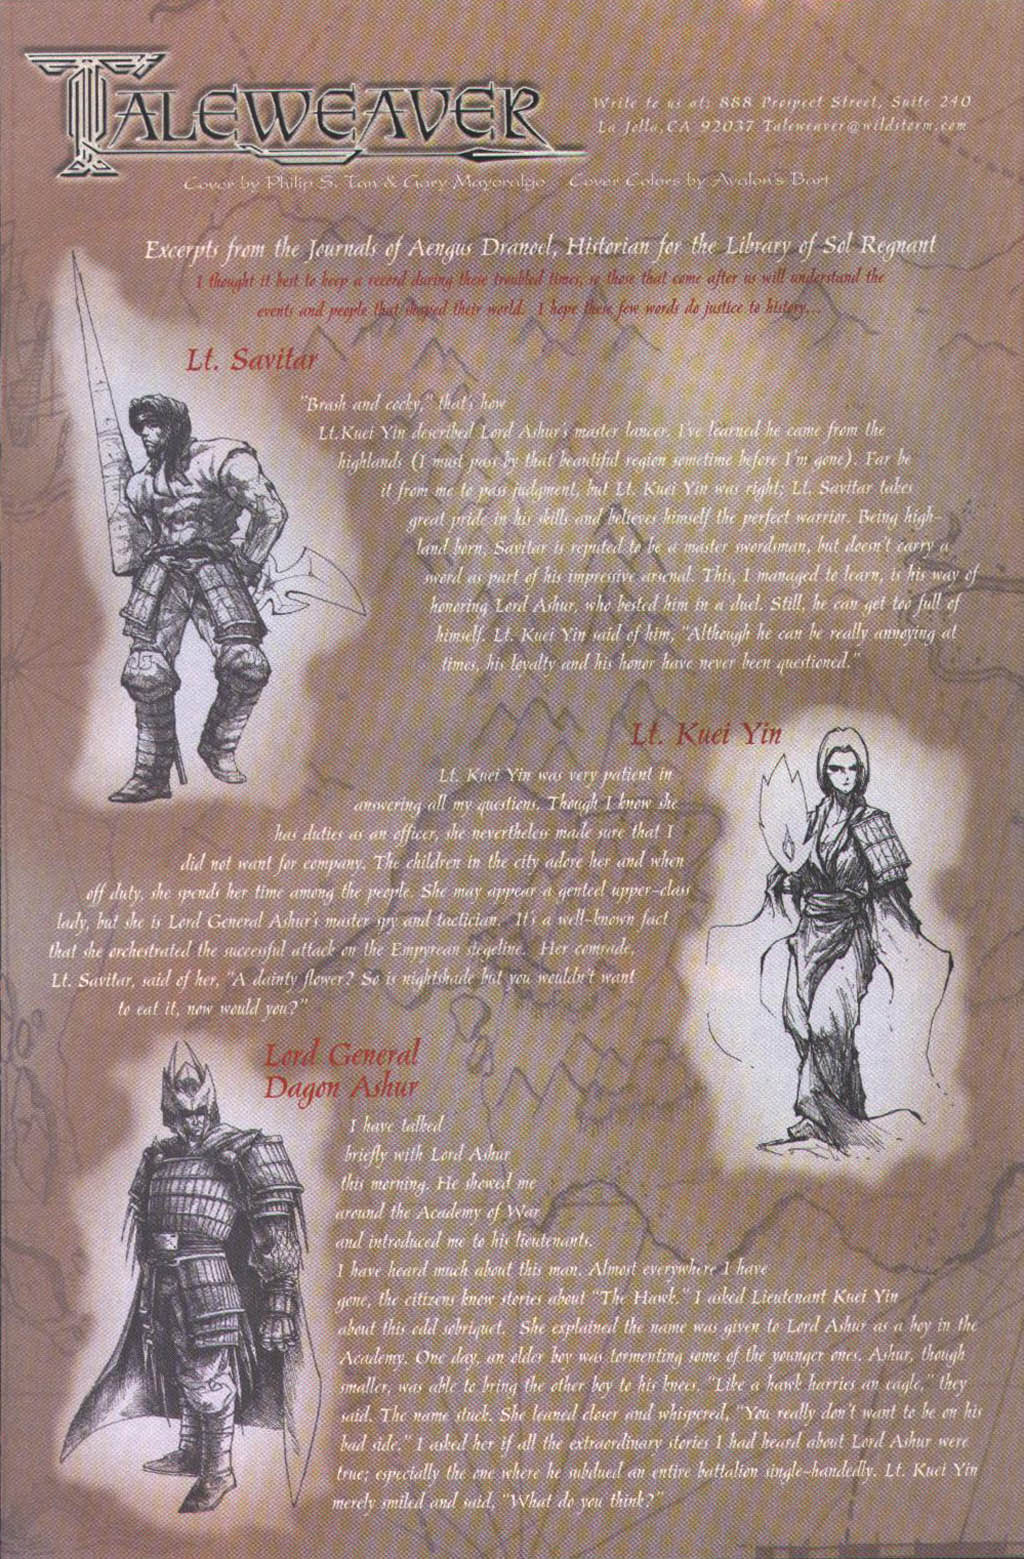 TALEWEAVER
Write to us at: 888 Prospect Street, Suite 240
La Jolla, CA 92037 Taleweaver@wildstorm.com
Cover by Philip S. Tan & Gary Mayoralgo Cover Colors by Avalon's Bart
Excerpts from the Journals of Aengus Dranoel, Historian for the Library of Sol Regnant
I thought it best to keep a record during these troubled times, so those that come after us will understand the
events and people that shaped their world. I hope these few words do justice to history...
Lt. Savitar
"Brash and cocky," that's how
Lt. Kuei Yin described Lord Ashur's master lancer. I've learned he came from the
highlands (I must pass by that beautiful region sometime before I'm gone). Far be
it from me to pass judgment, but Lt. Kuei Yin was right; Lt. Savitar takes
great pride in his skills and believes himself the perfect warrior. Being high-
land born, Savitar is reputed to be a master swordsman, but doesn't carry a
sword as part of his impressive arsenal. This, I managed to learn, is his way of
honoring Lord Ashur, who bested him in a duel. Still, he can get too full of
himself. Lt. Kuei Yin said of him, "Although he can be really annoying at
times, his loyalty and his honor have never been questioned."
Lt. Kuei Yin
Lt. Kuei Yin was very patient in
answering all my questions. Though I know she
has duties as an officer, she nevertheless made sure that I
did not want for company. The children in the city adore her and when
off duty, she spends her time among the people. She may appear a genteel upper-class
lady, but she is Lord General Ashur's master spy and tactician. It's a well-known fact
that she orchestrated the successful attack on the Empyrean siegeline. Her comrade,
Lt. Savitar, said of her, "A dainty flower? So is nightshade but you wouldn't want
to eat it, now would you?"
Lord General
Dagon Ashur
I have talked
briefly with Lord Ashur
this morning. He showed me
around the Academy of War
and introduced me to his lieutenants.
I have heard much about this man. Almost everywhere I have
gone, the citizens know stories about "The Hawk." I asked Lieutenant Kuei Yin
about this odd sobriquet. She explained the name was given to Lord Ashur as a boy in the
Academy. One day, an older boy was tormenting some of the younger ones. Ashur, though
smaller, was able to bring the other boy to his knees. "Like a hawk harries an eagle," they
said. The name stuck. She leaned closer and whispered, "You really don't want to be on his
bad side." I asked her if all the extraordinary stories I had heard about Lord Ashur were
true; especially the one where he subdued an entire battalion single-handedly. Lt. Kuei Yin
merely smiled and said, "What do you think?"